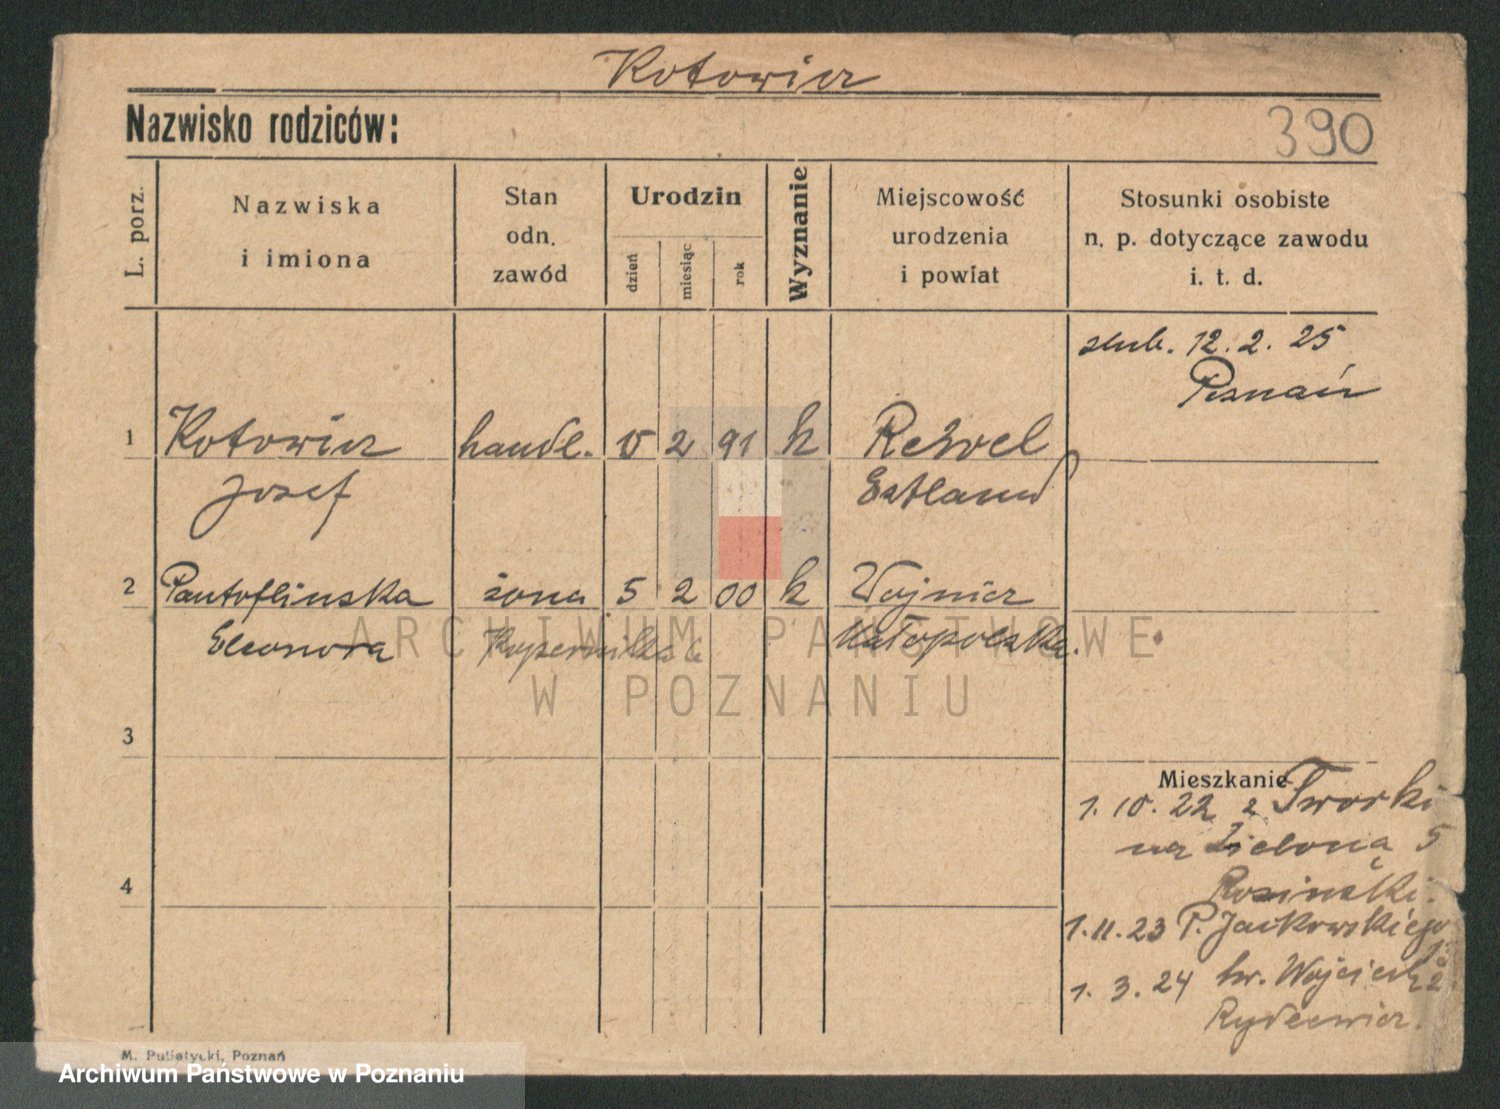 Kotowicz
Nazwisko rodziców:
390
L. porz.
Nazwiska
i imiona
Stan
odn.
zawód
Urodzin
dzień
miesiąc
rok
Wyznanie
Miejscowość
urodzenia
i powiat
Stosunki osobiste
n. p. dotyczące zawodu
i. t. d.
ślub. 12. 2. 25
Poznań
1 Kotowicz handl. 15 2 91 k Rewel
Josef Estland
2 Pantoflinska żona 5 2 00 k Wojnicz
Eleonora Małopolska.
ARCHIWUM PAŃSTWOWE
W POZNANIU
3
Mieszkanie
1. 10. 22 z Tworki
na Zieloną 5
Rosinski.
4
1. 11. 23 P. Jackowskiego
1. 3. 24 św. Wojciech 2
Rydlewicz.
M. Putiatycki, Poznań
Archiwum Państwowe w Poznaniu